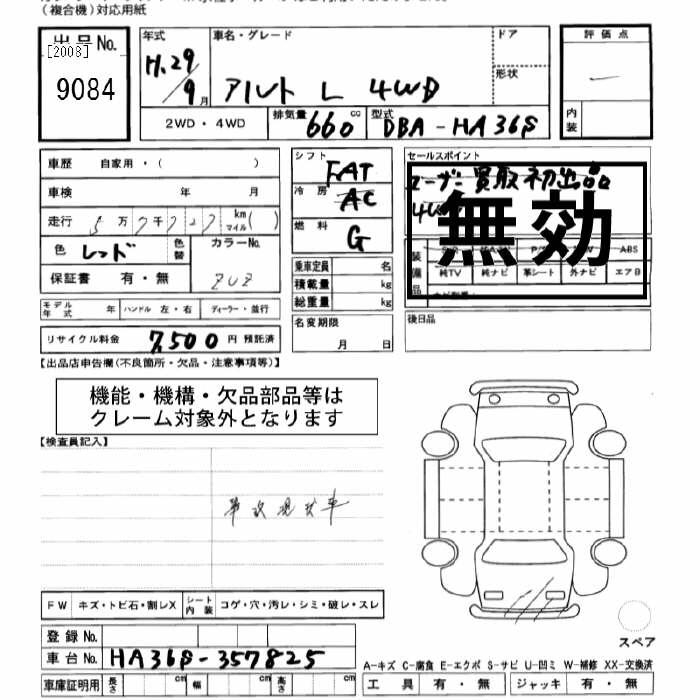 (複合機)対応用紙
出品No.
[2008]
9084
年式
H.29/9月
車名・グレード
アルト L 4WD
ドア
形状
2WD・4WD
排気量 660 cc
型式 DBA-HA36S
評価点
内装
車歴 自家用・( )
車検 年 月
走行 万 千 km マイル ( )
色 レッド 色替
カラーNo.
ZUZ
保証書 有・無
モデル年式 年 ハンドル 左・右 ディーラー・並行
リサイクル料金 7,500 円 預託済
シフト FAT
冷房 AC
燃料 G
乗車定員 名
積載量 kg
総重量 kg
名変期限
月 日
セールスポイント
ユーザー買取初出品
無効
装備品
ABS
純TV 純ナビ 革シート 外ナビ エアB
後日品
【出品店申告欄(不良箇所・欠品・注意事項等)】
機能・機構・欠品部品等は
クレーム対象外となります
【検査員記入】
事故現状車
FW キズ・トビ石・割レX シート内装 コゲ・穴・汚レ・シミ・破レ・スレ
登録No.
車台No. HA36S-357825
車庫証明用 長さ cm 幅 cm 高さ cm
スペア
A-キズ C-腐食 E-エクボ S-サビ U-凹ミ W-補修 XX-交換済
工具 有・無 ジャッキ 有・無